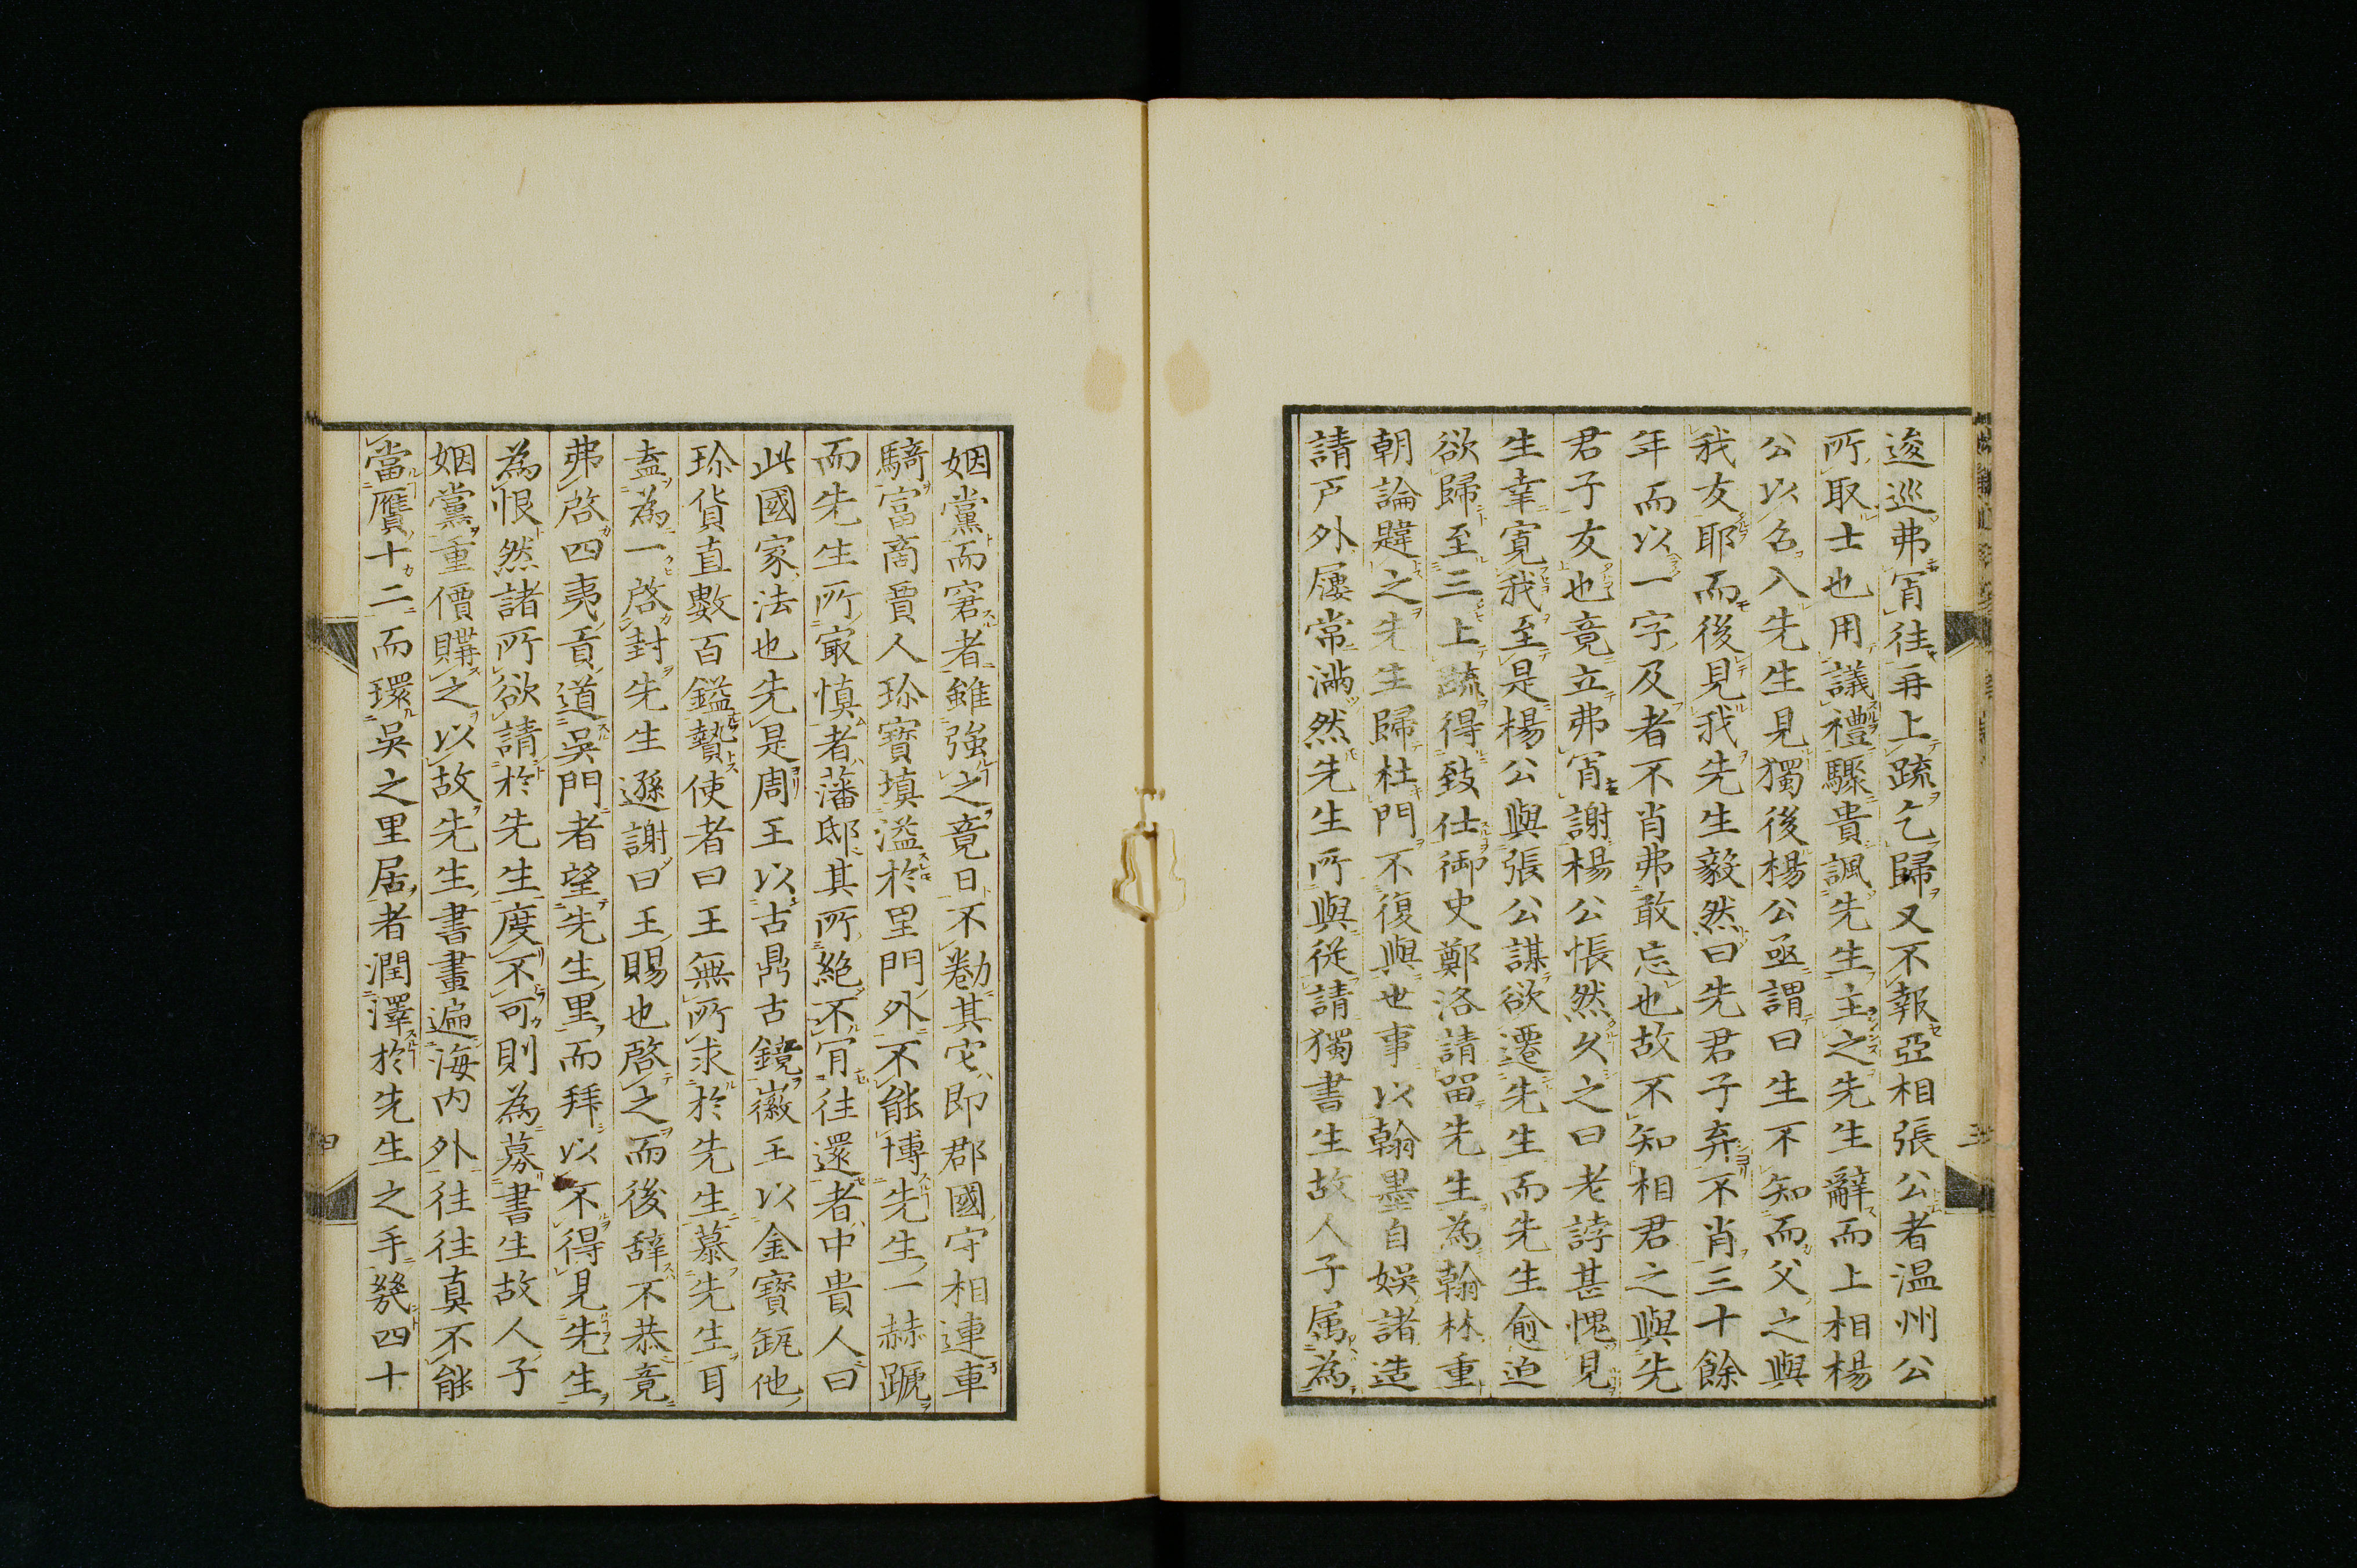 逡巡弗肎往再上疏乞歸又不報亞相張公者温州公
所取士也用議禮驟貴諷先生主之先生辭而上相楊
公以召入先生見獨後楊公亟謂曰生不知而父之與
我友耶而後見我先生毅然曰先君子弃不肖三十餘
年而以一字及者不肖弗敢忘也故不知相君之與先
君子友也竟立弗肎謝楊公悵然久之曰老誖甚愧見
生幸寛我至是楊公與張公謀欲遷先生而先生愈迫
欲歸至三上疏得致仕御史鄭洛請畱先生為翰林重
朝論韙之先生歸杜門不復與世事以翰墨自娯諸造
請戸外屨常滿然先生所與從請獨書生故人子属為
姻黨而窘者雖強之竟日不勌其它即郡國守相連車
騎富商賈人珍寶填溢於里門外不能博先生一赫蹏
而先生所㝡慎者藩邸其所絶不肎往還者中貴人曰
此國家法也先是周王以古鼎古鏡徽王以金寶瓴他
珍貨直數百鎰贄使者曰王無所求於先生慕先生耳
盍為一啓封先生遜謝曰王賜也啓之而後辞不恭竟
弗啓四夷貢道吴門者望先生里而拜以不得見先生
為恨然諸所欲請於先生度不可則為募書生故人子
姻黨重價購之以故先生書畫遍海内外往往真不能
當贋十二而環吳之里居者潤澤於先生之手㡬四十
三
四